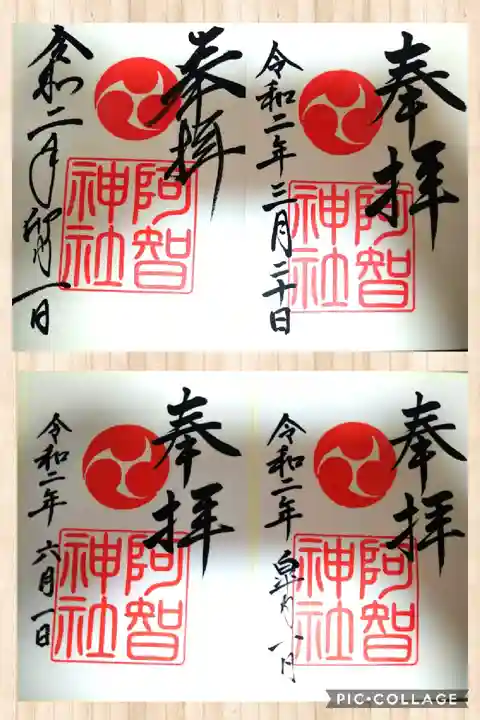 奉拝
阿智
神社
令和二年三月二十日
奉拝
阿智
神社
令和二年卯月一日
奉拝
阿智
神社
令和二年皐月八日
奉拝
阿智
神社
令和二年六月一日
PIC•COLLAGE